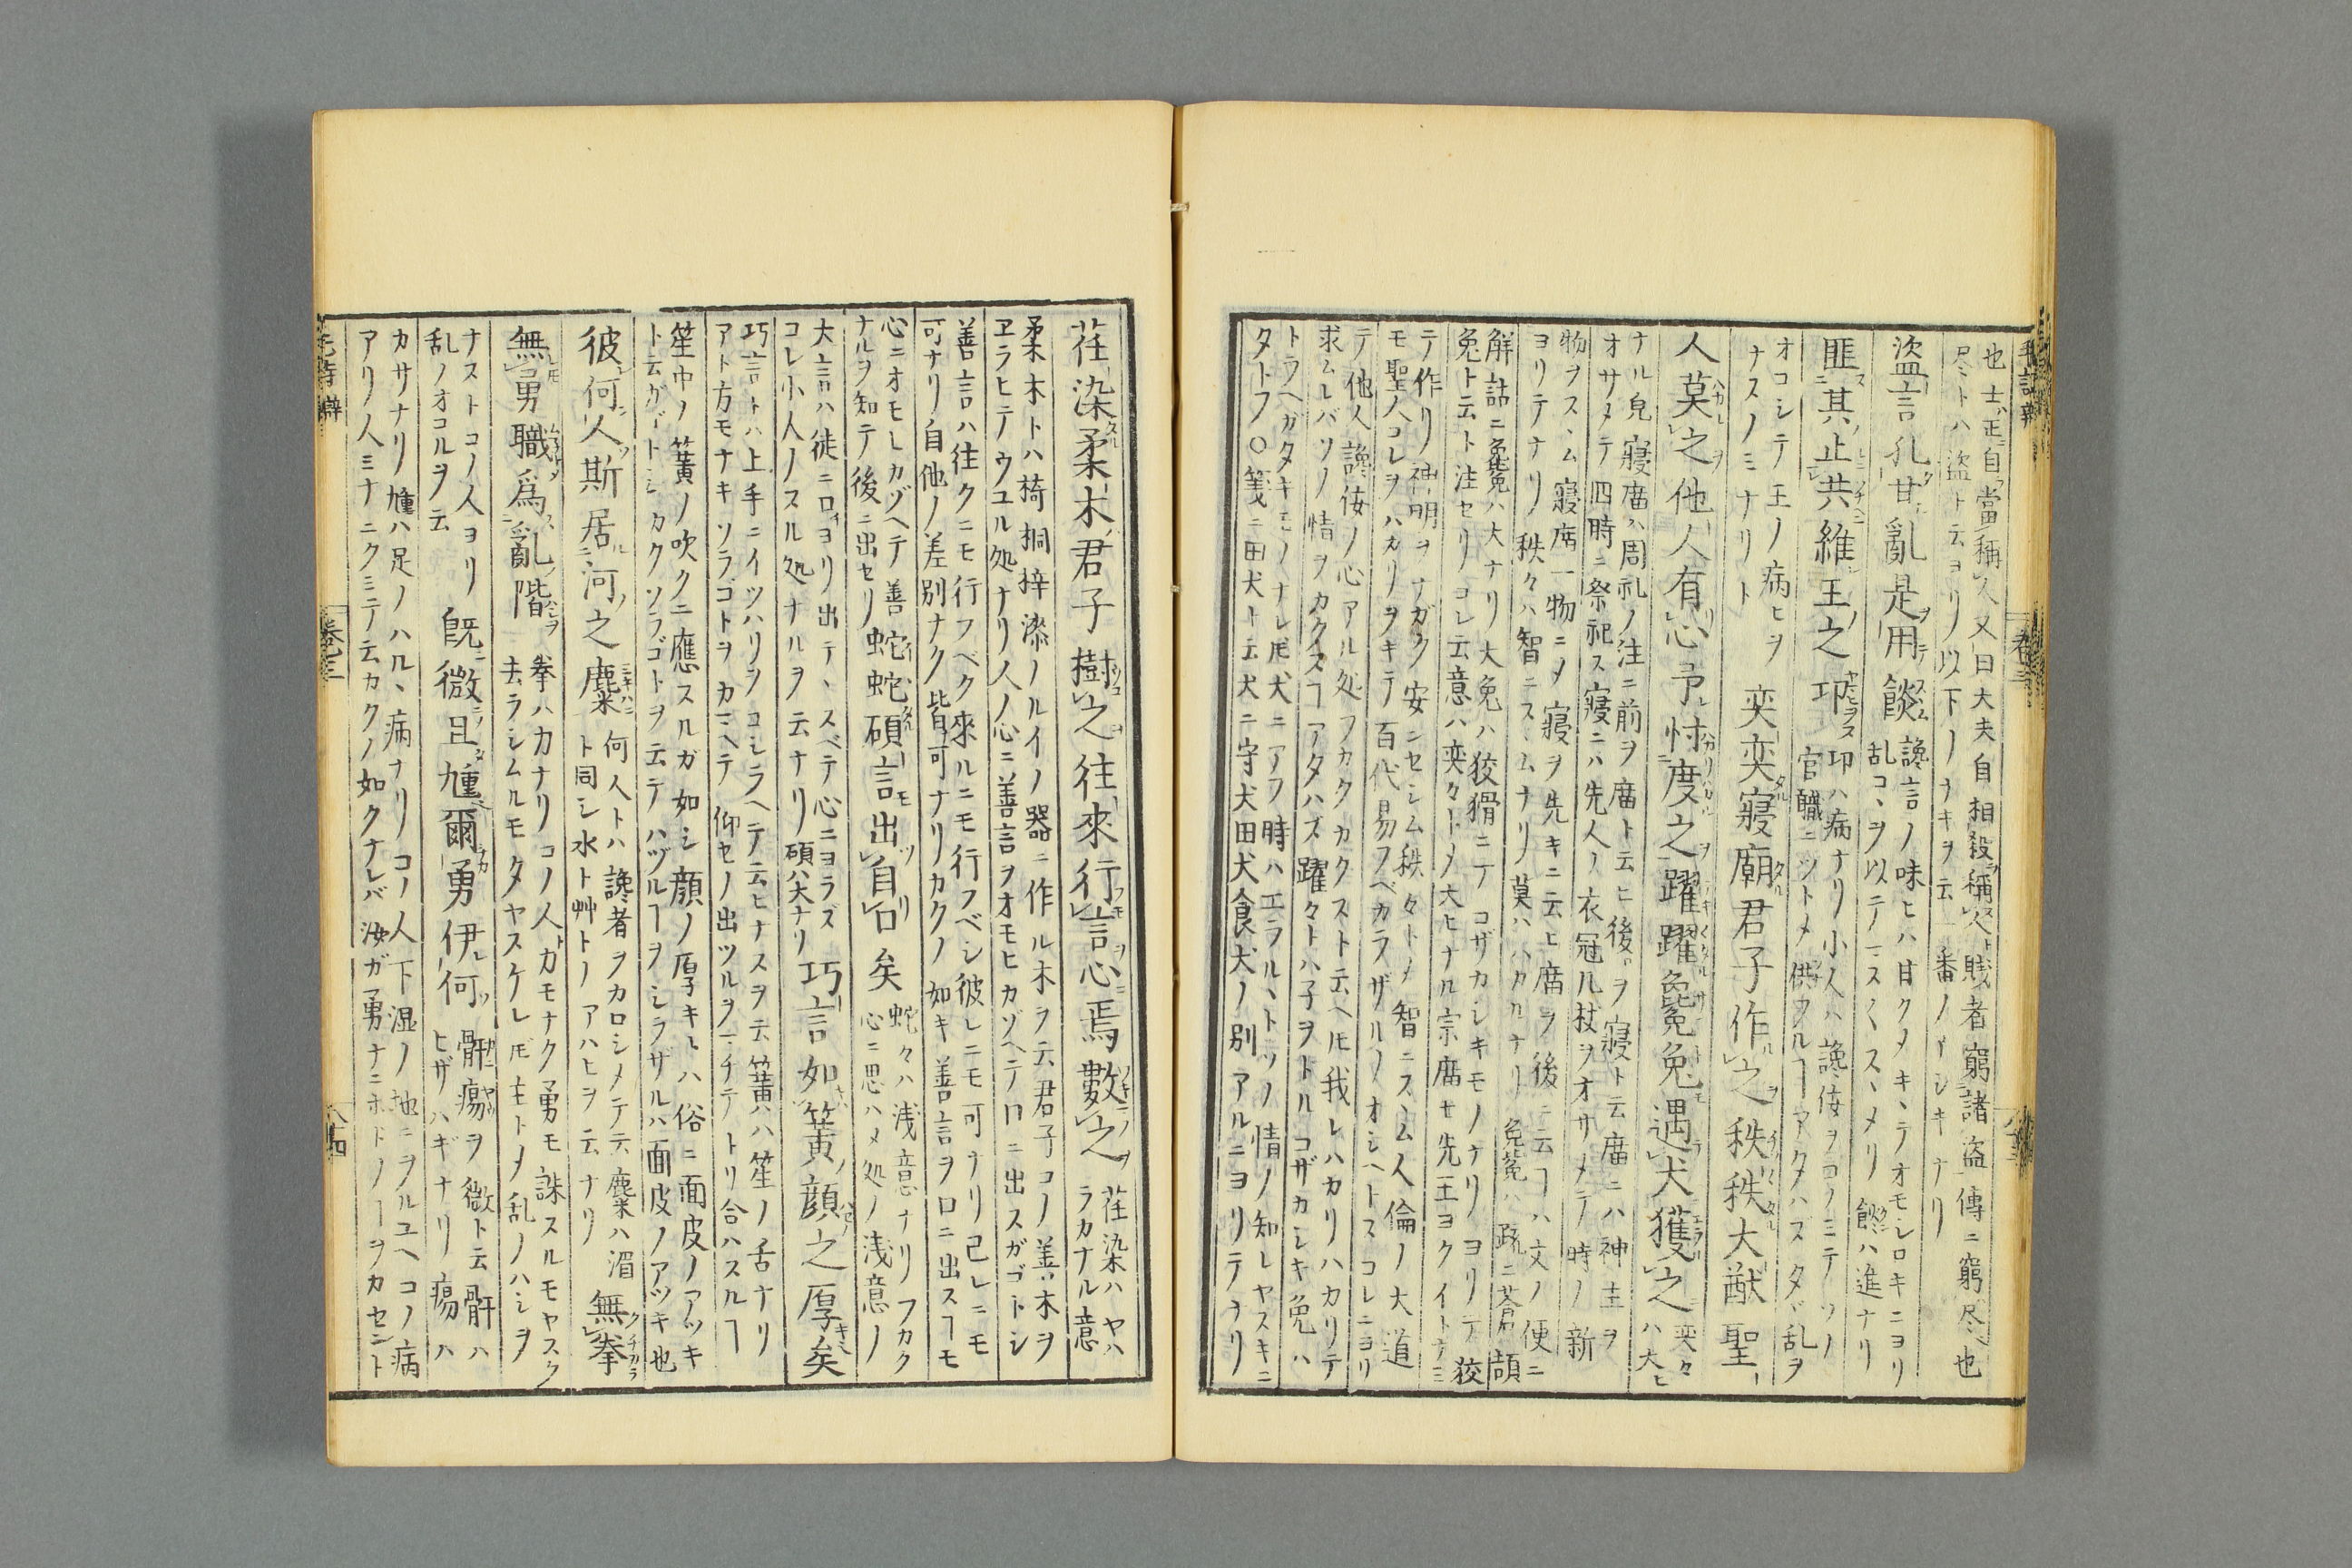 也士正自當稱人又曰大夫自相殺稱人賤者窮諸盗傳ニ窮尽也
尽トハ盗ト云ヨリ以下ノナキヲ云一番ノイシキナリ
盗言孔甘亂是用餤
讒言ノ味ヒハ甘クメキヽテオモシロキニヨリ
乱コヽヲ以テマスススヽメリ餤ハ進ナリ
匪其止共維王之卭
卭ハ病ナリ小人ハ讒侫ヲコノミテソノ
官職ニツトメ供ヲルヿアタハズタヾ乱ヲ
オコシテ王ノ病ヒヲ
ナスノミナリト
奕奕寢廟君子作之秩秩大猷聖
人莫之他人有心予忖度之躍躍毚兔遇犬獲之
奕々
ハ大ヒ
ナル皃寢庿ハ周礼ノ注ニ前ヲ庿ト云ヒ後ヲ寢ト云庿ニハ神主ヲ
オサメテ四時ニ祭祀ス寢ニハ先人ノ衣冠几杖ヲオサメテ時ノ新
物ヲスヽム寢庿一物ニメ寢ヲ先キニ云ヒ庿ヲ後ニ云ヿハ文ノ便ニ
ヨリテナリ秩々ハ智ニスヽムナリ莫ハハカルナリ毚兔ハ疏ニ蒼頡
解詁ニ毚兔ハ大ナリ大兔ハ狡猾ニテコザカシキモノナリヨリテ狡
兔ト云ト注セリコレ云意ハ奕々トメ大ヒナル宗庿モ先王ヨクイトナミ
テ作リ神明ヲナガク安ンセシム秩々トメ智ニスヽム人倫ノ大道
モ聖人コレヲハカリヲキテ百代易フベカラザルノオシヘトスコレニヨリ
テ他人讒侫ノ心アル処フカクカクスト云ヘ𪜈我レハカリハカリテ
求ムレバソノ情ヲカクスヿアタハズ躍々トハ子ヲトルコザカシキ兔ハ
トラヘガタキモノナレ𪜈犬ニアフ時ハエラルヽトソノ情ノ知レヤスキニ
タトフ〇箋ニ田犬ト云犬ニ守犬田犬食犬ノ別アルニヨリテナリ
荏染柔木君子樹之往來行言心焉數之
荏染ハヤハ
ラカナル意
柔木トハ椅桐梓漆ノルイノ器ニ作ル木ヲ云君子コノ善木ヲ
ヱラヒテウユル処ナリ人ノ心ニ善言ヲオモヒカゾヘテ口ニ出スガゴトシ
善言ハ往クニモ行フベク來ルニモ行フベシ彼レニモ可ナリ己レニモ
可ナリ自他ノ差別ナク皆可ナリカクノ如キ善言ヲ口ニ出スヿモ
心ニオモレカゾヘテ善
ナルヲ知テ後ニ出セリ
蛇蛇碩言出自口矣
蛇々ハ浅意ナリフカク
心ニ思ハメ処ノ浅意ノ
大言ハ徒ニ口ヨリ出テヽスベテ心ニヨラズ
コレ小人ノスル処ナルヲ云ナリ碩ハ大ナリ
巧言如簧顔之厚矣
巧言トハ上手ニイツハリヲコシラヘテ云ヒナスヲ云簧ハ笙ノ舌ナリ
アト方モナキソラゴトヲカマヘテ仰セノ出ツルヲマチテトリ合ハスルヿ
笙中ノ簧ノ吹クニ應スルガ如シ顔ノ厚キトハ俗ニ面皮ノアツキ
ト云ガゴトシカクソラゴトヲ云テハヅルヿヲシラザルハ面皮ノアツキ也
彼何人斯居河之麋
何人トハ讒者ヲカロシメテ云麋ハ湄
ト同シ水ト艸トノアハヒヲ云ナリ
無拳
無勇職爲亂階
拳ハカナリコノ人カモナク勇モ誅スルモヤスク
去ラシムルモタヤスケレ𪜈主トメ乱ノハシヲ
ナストコノ人ヨリ
乱ノオコルヲ云
旣微且尰爾勇伊何
骭瘍ヲ微ト云骭ハ
ヒザハギナリ瘍ハ
カサナリ尰ハ足ノハルヽ病ナリコノ人下湿ノ地ニヲルユヘコノ病
アリ人ミナニクミテ云カクノ如クナレバ汝ガ勇ナニホドノヿヲカセント
毛詩辨
卷三
八十四